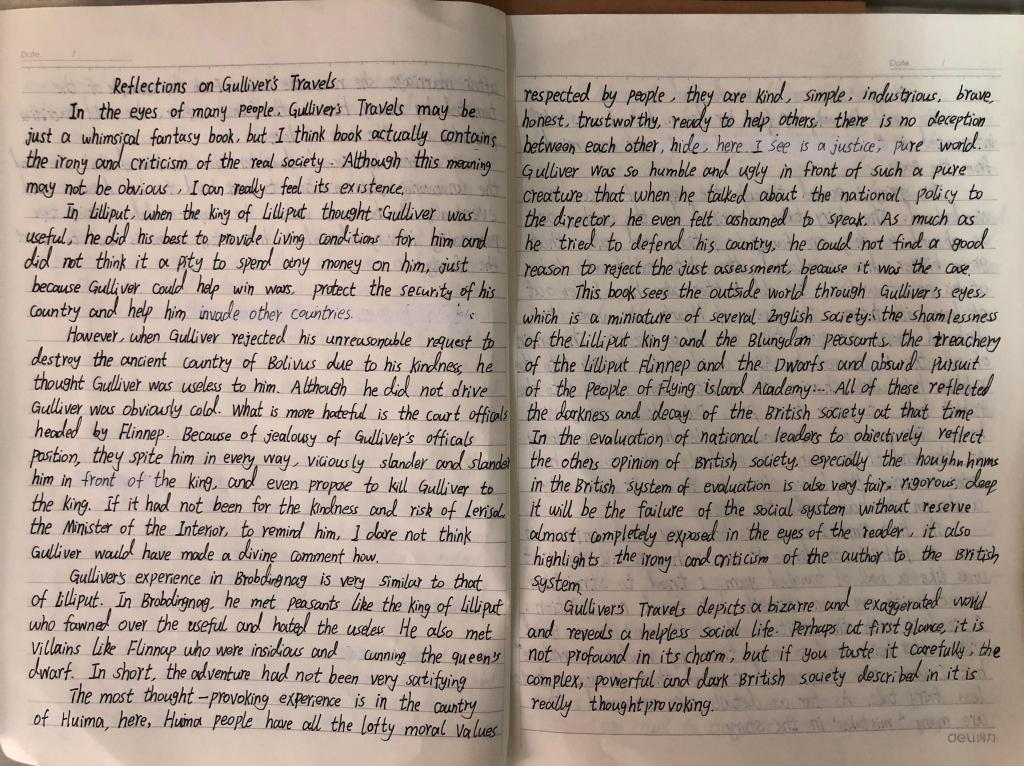 Date. /
Reflections on Gulliver's Travels
In the eyes of many people, Gulliver's Travels may be
just a whimsical fantasy book, but I think book actually contains
the irony and criticism of the real society. Although this meaning
may not be obvious, I can really feel its existence.
In Lilliput, when the king of Lilliput thought Gulliver was
useful, he did his best to provide living conditions for him and
did not think it a pity to spend any money on him, just
because Gulliver could help win wars, protect the security of his
country and help him invade other countries.
However, when Gulliver rejected his unreasonable request to
destroy the ancient country of Bolivus due to his kindness, he
thought Gulliver was useless to him. Although he did not drive
Gulliver was obviously cold. What is more hateful is the court officals
headed by Flinnep. Because of jealousy of Gulliver's officals
position, they spite him in every way, viciously slander and slander
him in front of the king, and even propose to kill Gulliver to
the king. If it had not been for the kindness and risk of Lerisal,
the Minister of the Interior, to remind him, I dare not think
Gulliver would have made a divine comment how.
Gulliver's experience in Brobdingnag is very similar to that
of Lilliput. In Brobdingnag, he met peasants like the king of Lilliput
who fawned over the useful and hated the useless He also met
villains like Flinnap who were insidious and cunning the queen's
dwarf. In short, the adventure had not been very satifying
The most thought-provoking experience is in the country
of Huima, here, Huima people have all the lofty moral values
Date. /
respected by people, they are kind, simple, industrious, brave,
honest, trustworthy, ready to help others, there is no deception
between each other, hide, here I see is a justice, pure world.
Gulliver was so humble and ugly in front of such a pure
creature that when he talked about the national policy to
the director, he even felt ashamed to speak. As much as
he tried to defend his country, he could not find a good
reason to reject the just assessment, because it was the case.
This book sees the outside world through Gulliver's eyes,
which is a miniature of several English society: the shamlessness
of the Lilliput King and the Blungdam peasants, the treachery
of the Lilliput Flinnep and the Dwarfs and absurd pursuit
of the People of Flying island Academy... All of these reflected
the darkness and decay of the British society at that time
In the evaluation of national leaders to objectively reflect
the others opinion of British society, especially the houghnhnms
in the British system of evaluation is also very fair, rigorous, deep
it will be the failure of the social system without reserve
almost completely exposed in the eyes of the reader, it also
highlights the irony and criticism of the author to the British
system.
Gulliver's Travels depicts a bizarre and exaggerated world
and reveals a helpless social life. Perhaps at first glance, it is
not profound in its charm, but if you taste it carefully, the
complex, powerful and dark British society described in it is
really thoughtprovoking.
deli得力